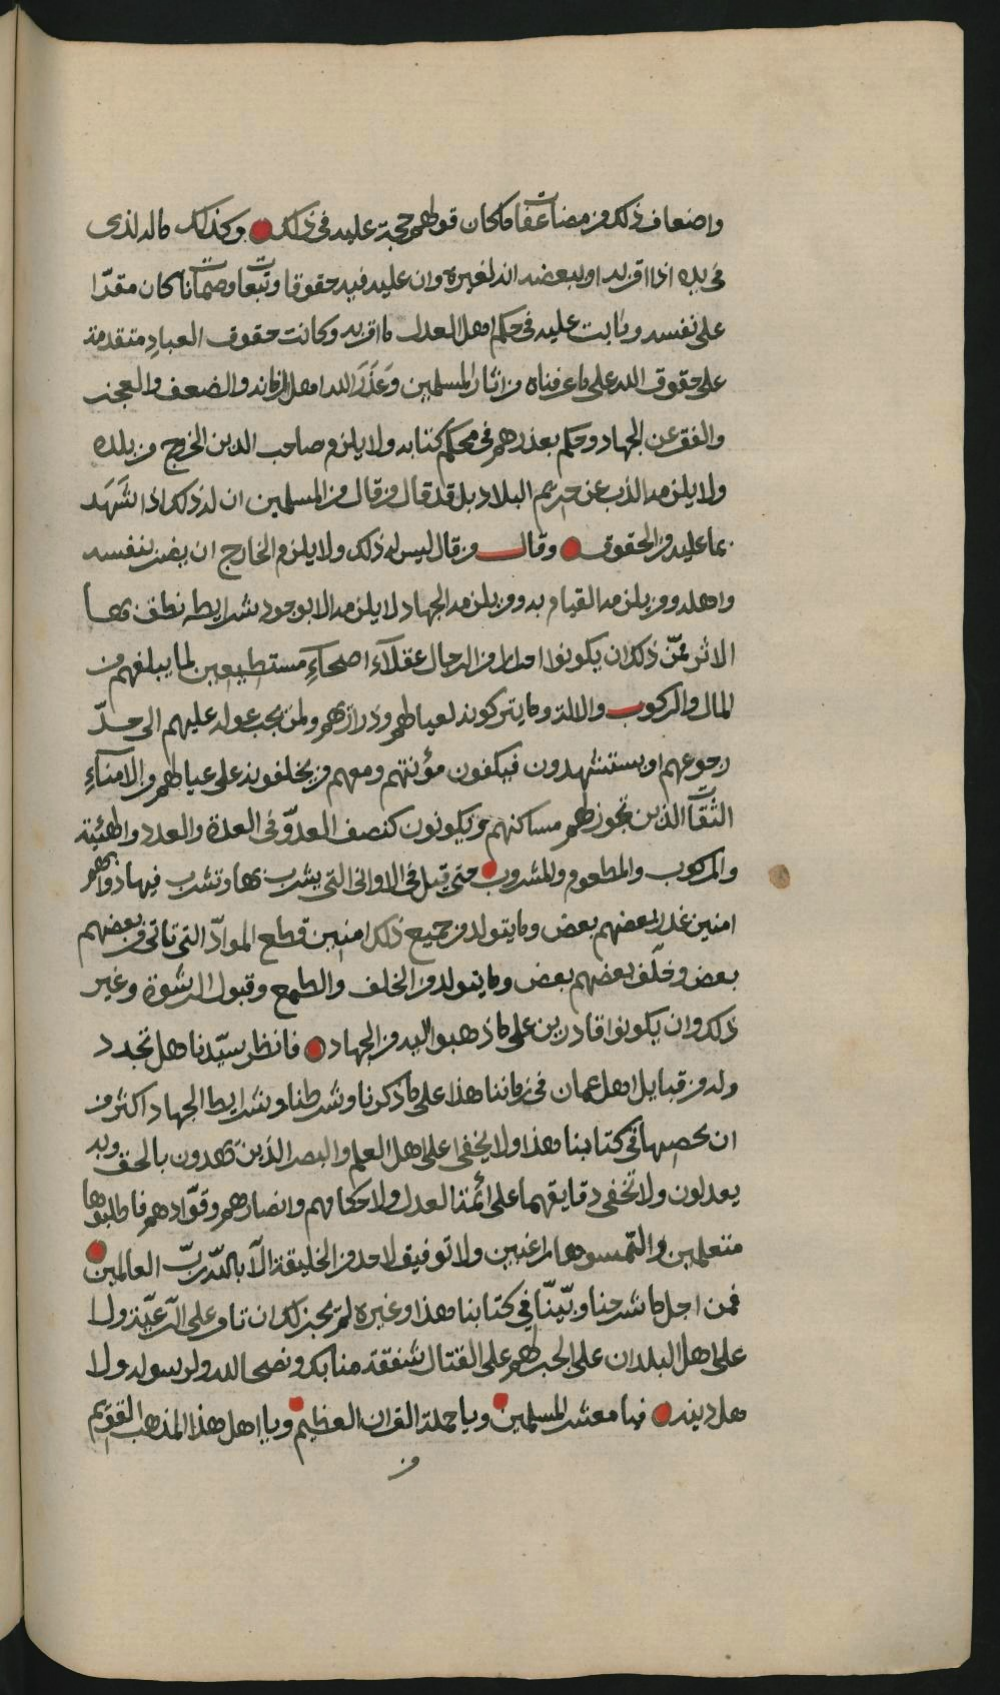 واضعاف ذلك من مضاعفات ما كان قولهم حجة عليه في ذلك وكذلك ماله الذي
في يده اذا اقر به او ببعضه انه لغيره وان عليه فيه حقوقا وتبعات وضمانات كان مقرّا
على نفسه وثابت عليه في حكم اهل العدل ما اقر به وكانت حقوق العبادِ متقدمة
على حقوق الله على ما عرفناه من اثار المسلمين وَعَذَرَ الله اهل الزمانه والضعف والعجز
والفقر عن الجهاد وحكم بعذرهم في محكم كتابه ولا يلزم صاحب الدين الخروج من بلده
ولا يلزمه الذب عن حريم البلاد بل قد قال من قال من المسلمين ان له ذلك اذا اشَهَد
بما عليه من الحقوق وقال من قال ليس له ذلك ولا يلزم الخارج ان يضر بنفسه
واهله ومن يلزمه القيام به ومن يلزمه الجهاد لا يلزمه الا بوجود شرايطه نطق بها
الاثر فمن ذلك ان يكونوا احرارا من الرجال عقلآء اصحآءِ مستطيعين لما يبلغهم من
المال والركوب والالة وما يتركونه لعيالهم وذراريهم ولمن يجب عوله عليهم الى حدّ
رجوعهم او يستشهدون فيكفون مؤنتهم ومعهم من يخلفونه على عيالهم من الامنآءِ
الثقات الذين تجوز لهم مساكنهم ويكونون كنصف العدوّ في العدة والعدد والهيئة
والمركوب والمطعوم والمشروب حتى قيل في الاواني التي يشرب بها وتشرب فيها دوابهم
امنين غدر بعضهم بعض وما يتولد من جميع ذلك امنين قطع الموادّ التي تاتي من بعضهم
بعض وخلف بعضهم بعض وما يتولد من الخلف والطمع وقبول الرشوة وغير
ذلك وان يكونوا قادرين على ما ذهبوا اليه من الجهاد فانظر سيّدنا هل تجد د
وله من قبايل اهل عمان في زماننا هذا على ما ذكرنا وشرطنا وشرايط الجهاد اكثر من
ان نحصيها في كتابنا هذا ولا يخفى على اهل العلم والبصر الذين يهدون بالحق وبه
يعدلون ولا تخفى دقايقهما على ائمة العدل ولا حكامهم وانصارهم وقوّادهم فاطلبوها
متعلمين والتمسوها راغبين ولا توفيق لاحد من الخليقة الّا بالله ربّ العالمين
فمن اجل ما شرحنا وبيّنّا في كتابنا هذا وغيره لم يجز لك ان تامر على الرّعيّة ولا
على اهل البلدان على الجبر لهم على القتال شفقة منا بك ونصحا لله ولرسوله ولا
هل دينه فيا معشر المسلمين ويا حملة القران العظيم ويا اهل هذا المذهب القويم
من